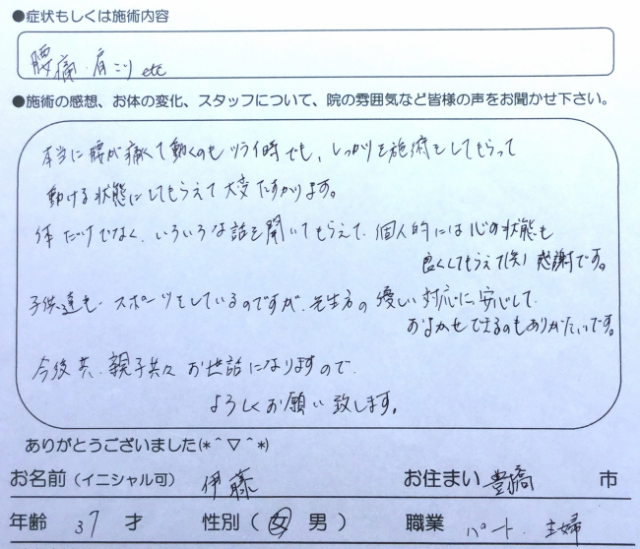 ●症状もしくは施術内容
腰痛・肩こり etc
●施術の感想、お体の変化、スタッフについて、院の雰囲気など皆様の声をお聞かせ下さい。
本当に腰が痛くて動くのもツライ時でも、しっかりと施術をしてもらって
動ける状態にしてもらえて大変たすかります。
体だけでなく、いろいろな話を聞いてもらえて、個人的には心の状態も
良くしてもらえて(笑)感謝です。
子供達も、スポーツをしているのですが、先生方の優しい対応に安心して
おまかせできるのもありがたいです。
今後共、親子共々お世話になりますので
よろしくお願い致します。
ありがとうございました(*^▽^*)
お名前(イニシャル可) 伊藤 お住まい 豊橋 市
年齢 37 才 性別(女 男) 職業 パート、主婦